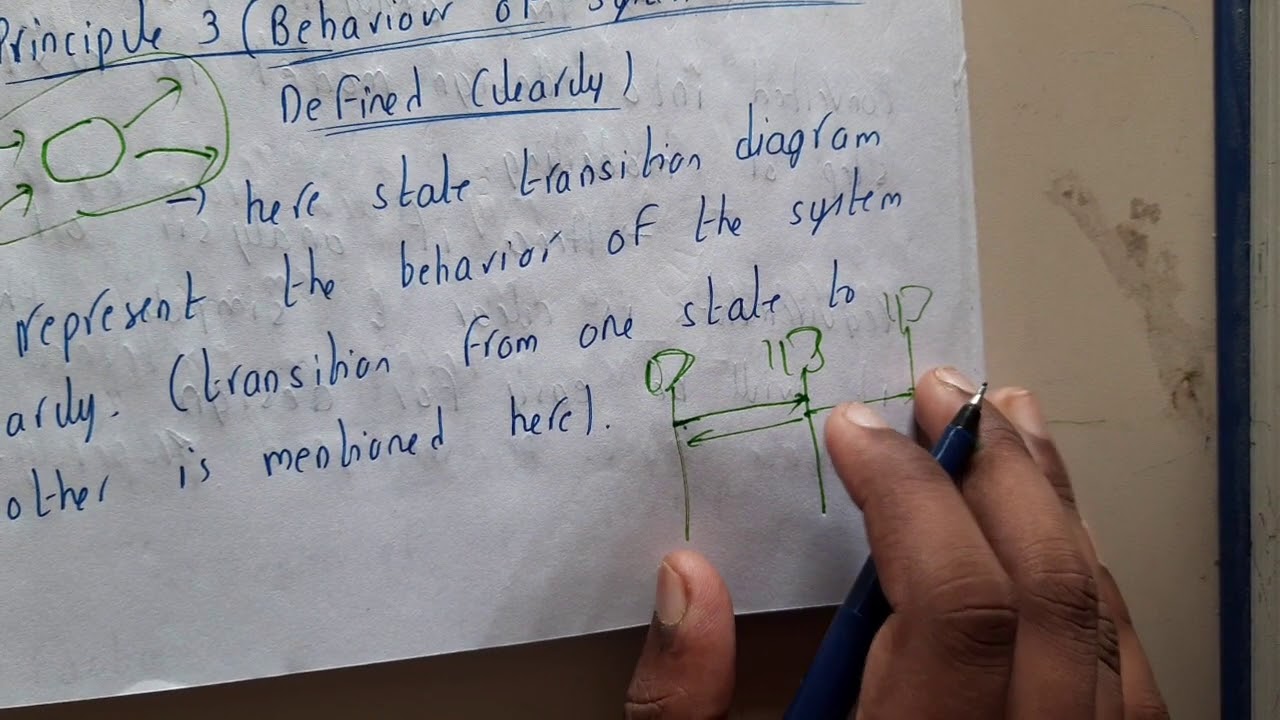 Principle 3 (Behaviour of
Defined (clearly)
→ here state transition diagram
represent the behavior of the system
ardy. (transition from one state to
other is mentioned here).